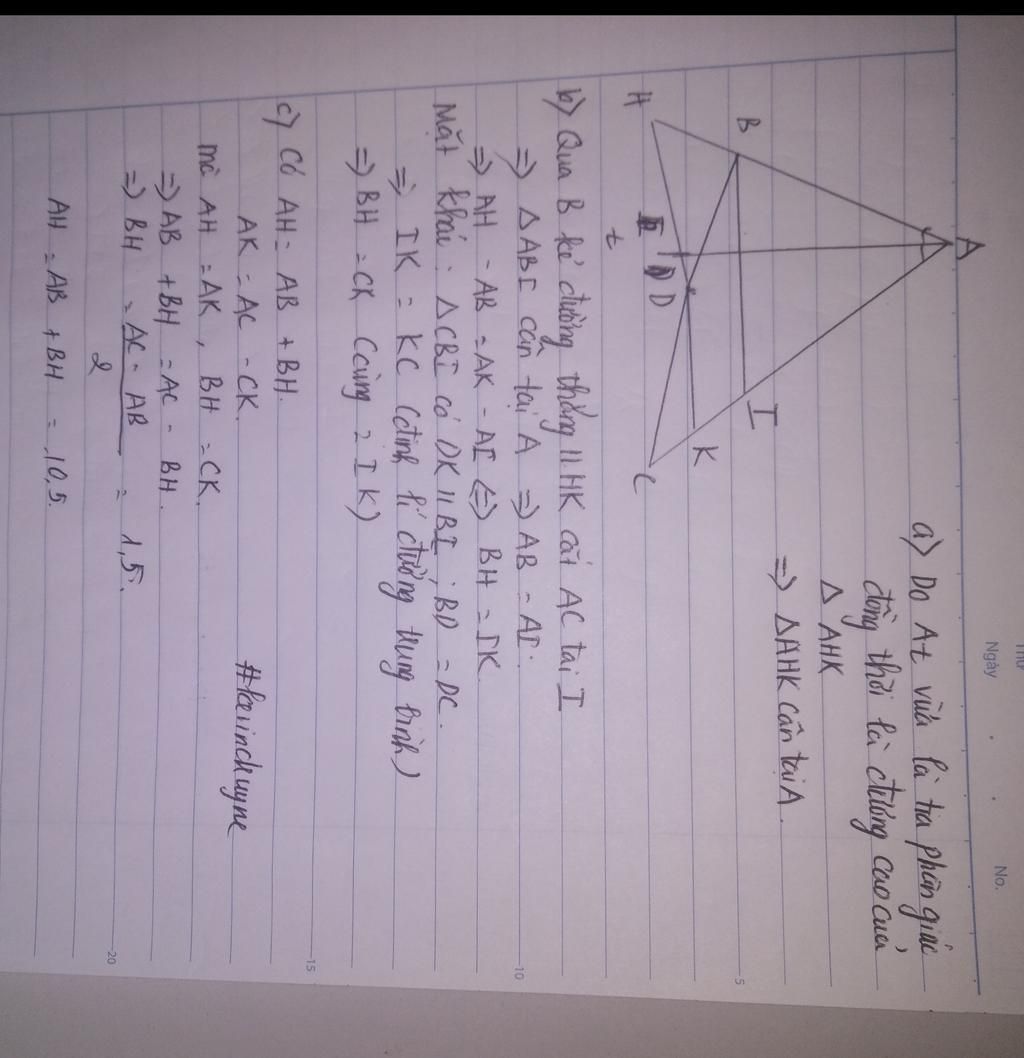 Thứ
Ngày
No.
A
B
I
H
K
D
C
t
a) Do At vừa là tia phân giác
đồng thời là đường cao của
Δ AHK
=> Δ AHK cân tại A.
b) Qua B kẻ đường thẳng // HK cắt AC tại I
=> Δ ABI cân tại A => AB = AI.
=> AH - AB = AK - AI <=> BH = IK.
Mặt khác: Δ CBI có DK // BI, BD = DC.
=> IK = KC (định lí đường trung bình)
=> BH = CK (cùng = IK)
c) Có AH = AB + BH.
AK = AC - CK.
mà AH = AK, BH = CK.
=> AB + BH = AC - BH.
=> BH = AC - AB / 2 = 1,5.
AH = AB + BH = 10,5.
5
10
15
20